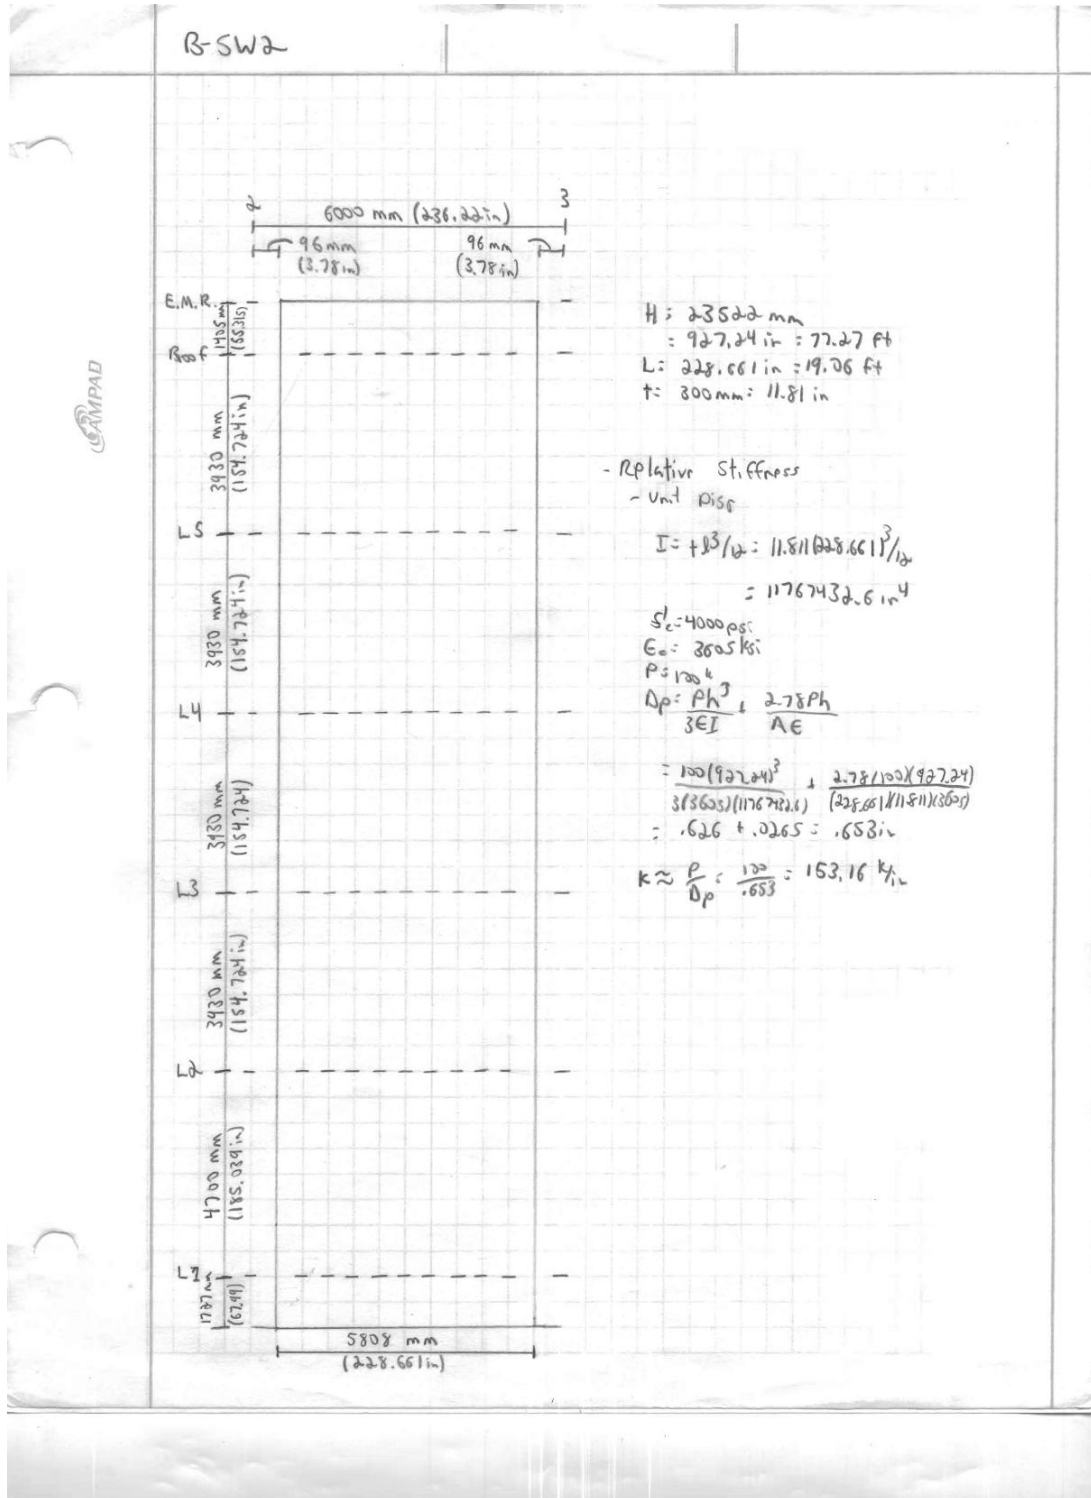 B-SW2
2 6000 mm (236.22in) 3
96mm 96 mm
(3.78in) (3.78in)
E.M.R.
1405 mm
(55.315)
Roof
3930 mm
(154.724in)
L5
3930 mm
(154.724in)
L4
3930 mm
(154.724)
L3
3930 mm
(154.724in)
L2
4700 mm
(185.039in)
L1
(67.99)
5808 mm
(228.661in)
H = 23522 mm
= 927.24 in = 77.27 ft
L = 228.661 in = 19.06 ft
t = 300mm = 11.81 in
- Relative Stiffness
- Unit Disp
I = tl³/12 = 11.811(228.661)³/12
= 11767432.6 in⁴
f'c = 4000 psi
Ec = 3605 ksi
P = 100 k
Dp = Ph³/3EI + 2.78Ph/AE
= 100(927.24)³/3(3605)(11767432.6) + 2.78(100)(927.24)/(228.661)(11.811)(3605)
= .626 + .0265 = .653in
K ≈ P/Dp = 100/.653 = 153.16 k/in
AMPAD